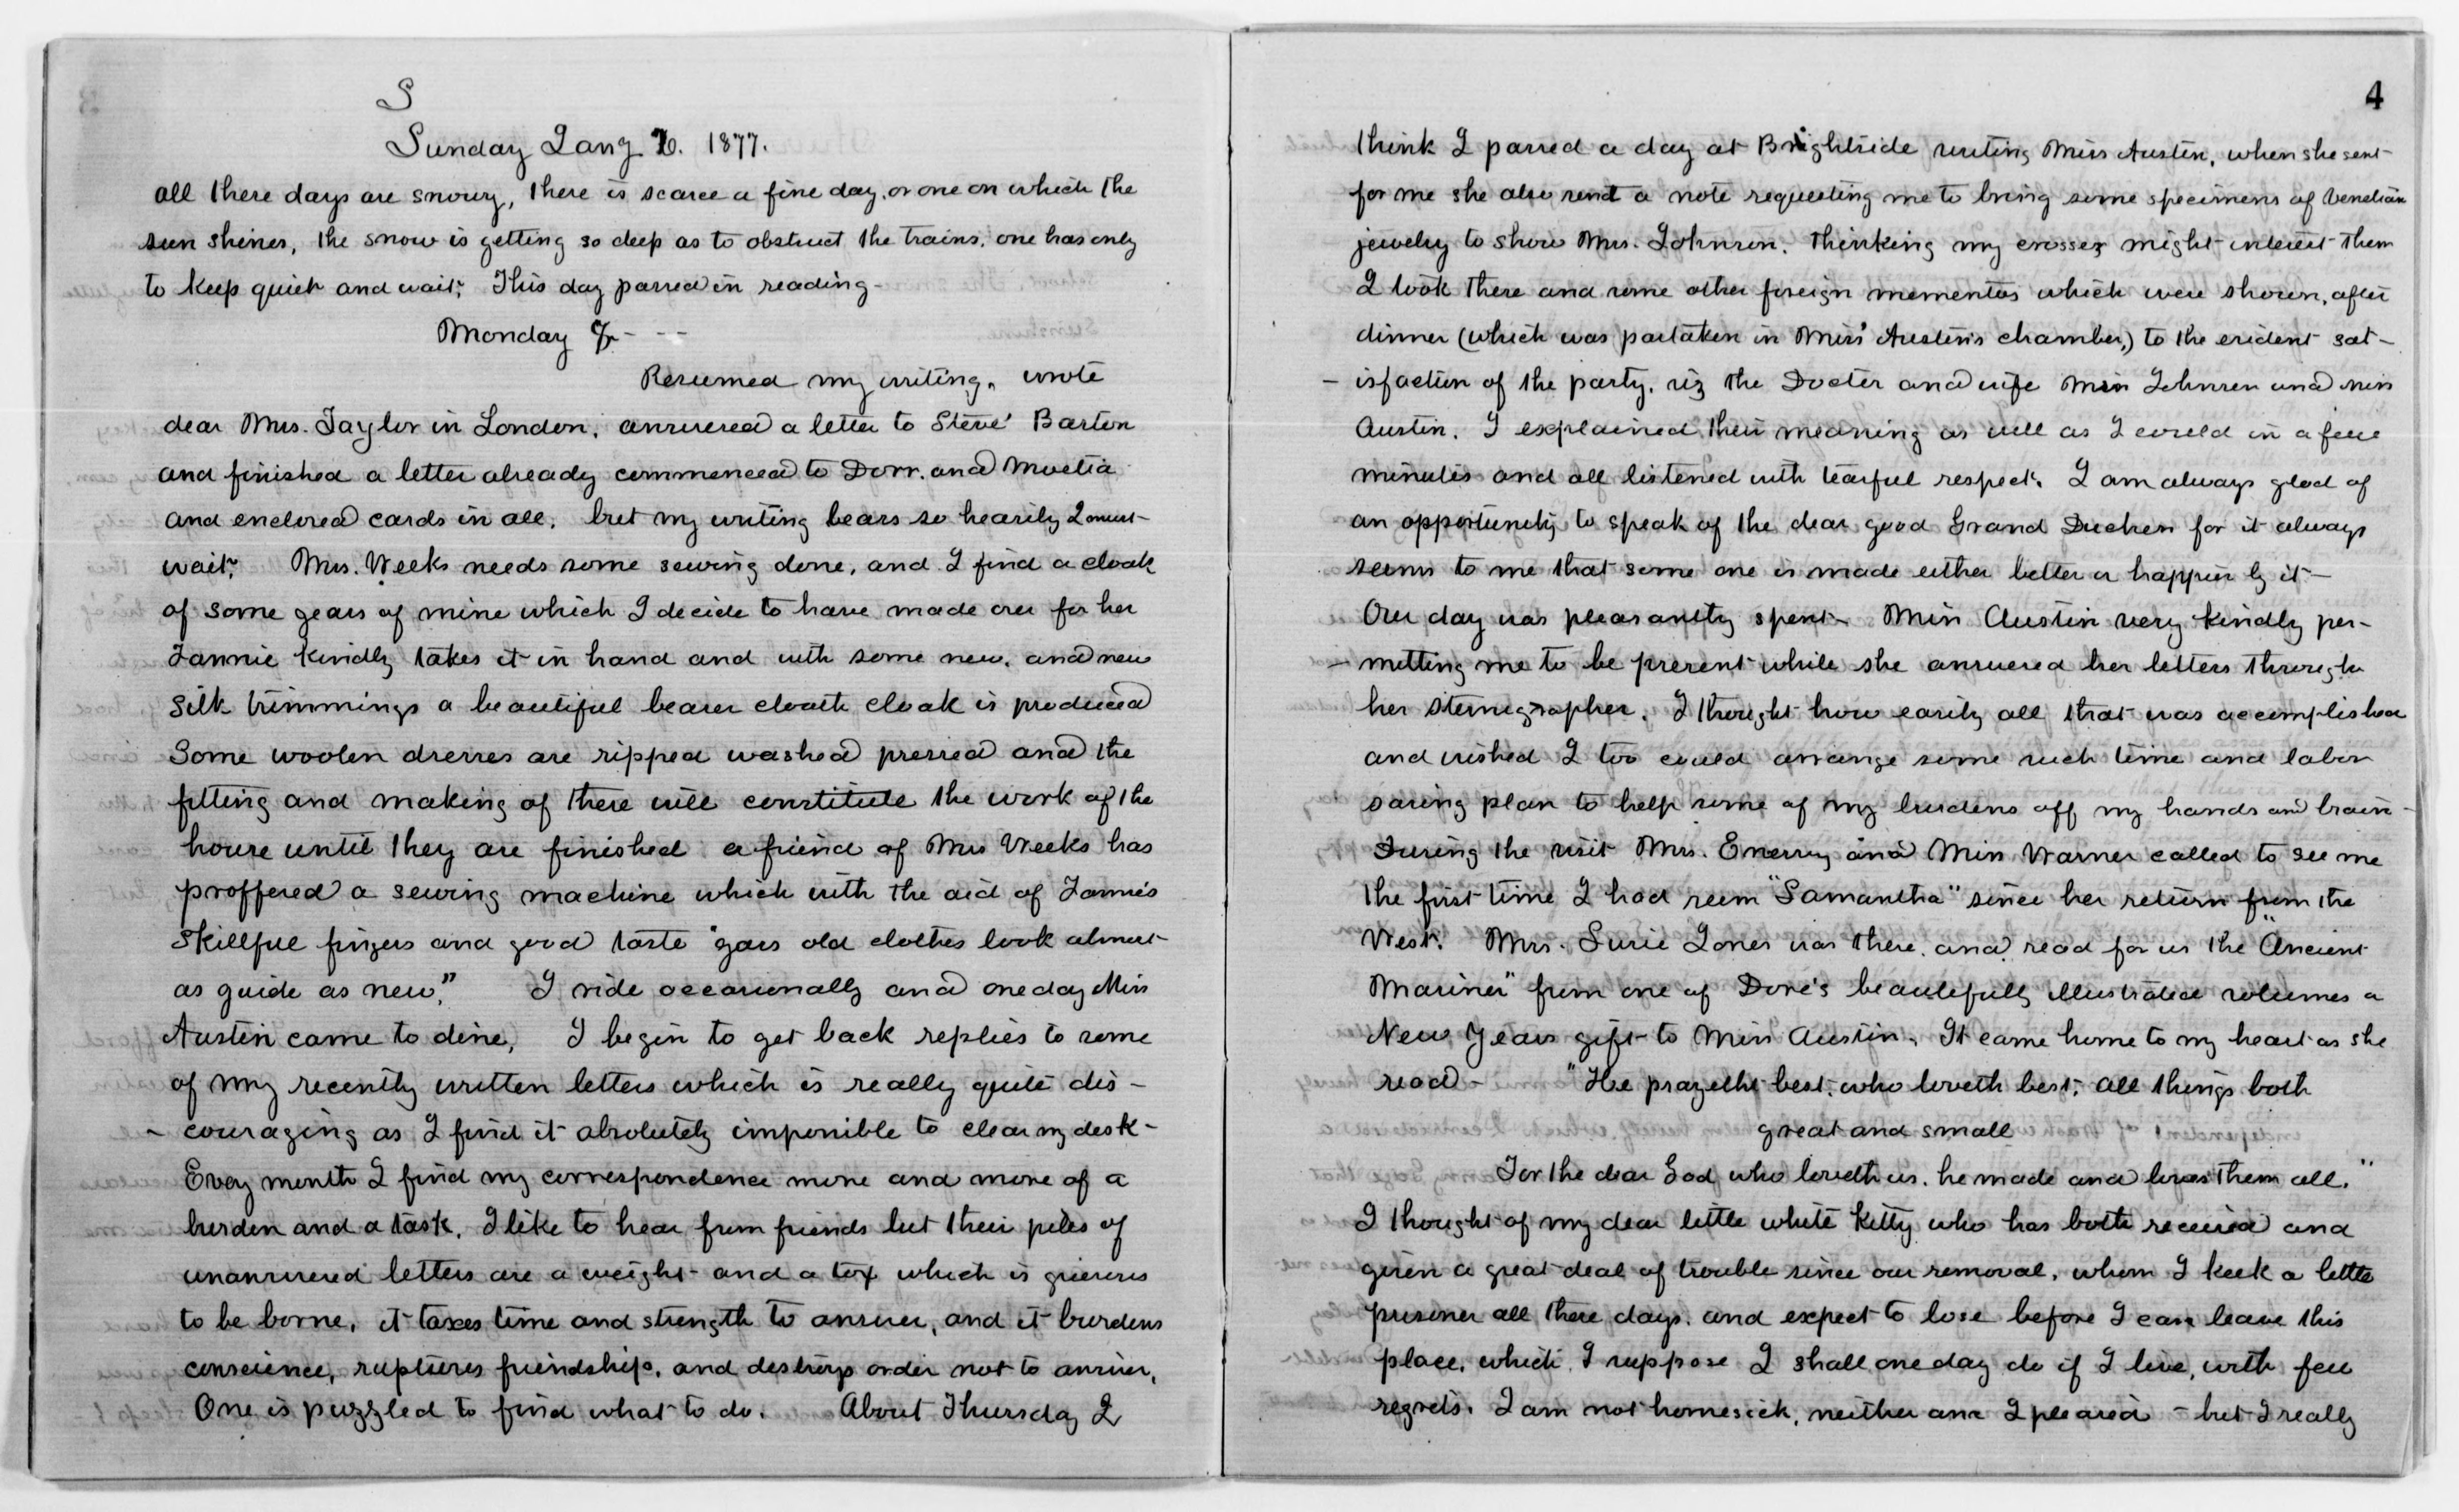 S
Sunday Jany 7. 1877.
all these days are snowy, there is scarce a fine day, or one on which the
sun shines, the snow is getting so deep as to obstruct the trains, one has only
to keep quiet and wait. This day passed in reading-
Monday 8 - - -
Resumed my writing, wrote
dear Mrs. Taylor in London, answered a letter to Steve' Barton
and finished a letter already commenced to Dorr. and
and enclosed cards in all, but my writing bears so heavily I must
wait. Mrs. Weeks needs some sewing done, and I find a cloak
of some years of mine which I decide to have made over for her
Fannie kindly takes it in hand and with some new, and new
silk trimmings a beautiful beaver cloath cloak is produced
Some woolen dresses are ripped washed pressed and the
fitting and making of these will constitute the work of the
house until they are finished a friend of Mrs Weeks has
proffered a sewing machine which with the aid of Fannie's
skillful fingers and good taste "gars old clothes look almost
as guide as new." I ride occasionally and one day Miss
Austin came to dine, I begin to get back replies to some
of my recently written letters which is really quite dis-
- couraging as I find it absolutely impossible to clear my desk-
Every month I find my correspondence more and more of a
burden and a task. I like to hear from friends but their piles of
unanswered letters are a weight and a tax which is grievous
to be borne, it taxes time and strength to answer, and it burdens
conscience, ruptures friendship, and destroys order not to answer,
One is puzzled to find what to do. About Thursday I
4
think I passed a day at Brightside visiting Miss Austin, when she sent
for me she also send a note requesting me to bring some specimens of Venetian
jewelry to show Mrs. Johnson. Thinking my crosses might interest them
I took these and some other foreign mementos which were shown, after
dinner (which was partaken in Miss' Austin's chamber,) to the evident sat-
- isfaction of the party, viz the Doctor and wife Miss Johnson and Miss
Austin. I explained their meaning as well as I could in a few
minutes and all listened with tearful respect. I am always glad of
an opportunity to speak of the dear good Grand Duchess for it always
seems to me that some one is made either better or happier by it-
Our day was pleasantly spent- Miss Austin very kindly per-
- mitting me to be present while she answered her letters through
her stenographer. I thought how easily all that was accomplished
and wished I too could arrange some such time and labor
saving plan to help some of my burdens off my hands and brain-
During the visit Mrs. Emerry and Miss Warner called to see me
the first time I had seen "Samantha" since her return from the
West. Mrs. Susie Jones was there. and read for us the "Ancient
Mariner" from one of Dore's beautifully illustrated volumes a
New Years gift to Miss Austin. It came home to my heart as she
read - "He prayeth best, who loveth best, all things both
great and small
For the dear God who loveth us. he made and loves them all."
I thought of my dear little white kitty who has both received and
given a great deal of trouble since our removal, whom I keek a little
prisoner all these days. and expect to lose before I can leave this
place, which I suppose I shall one day do if I live, with few
regrets. I am not homesick, neither am I pleased - but I really